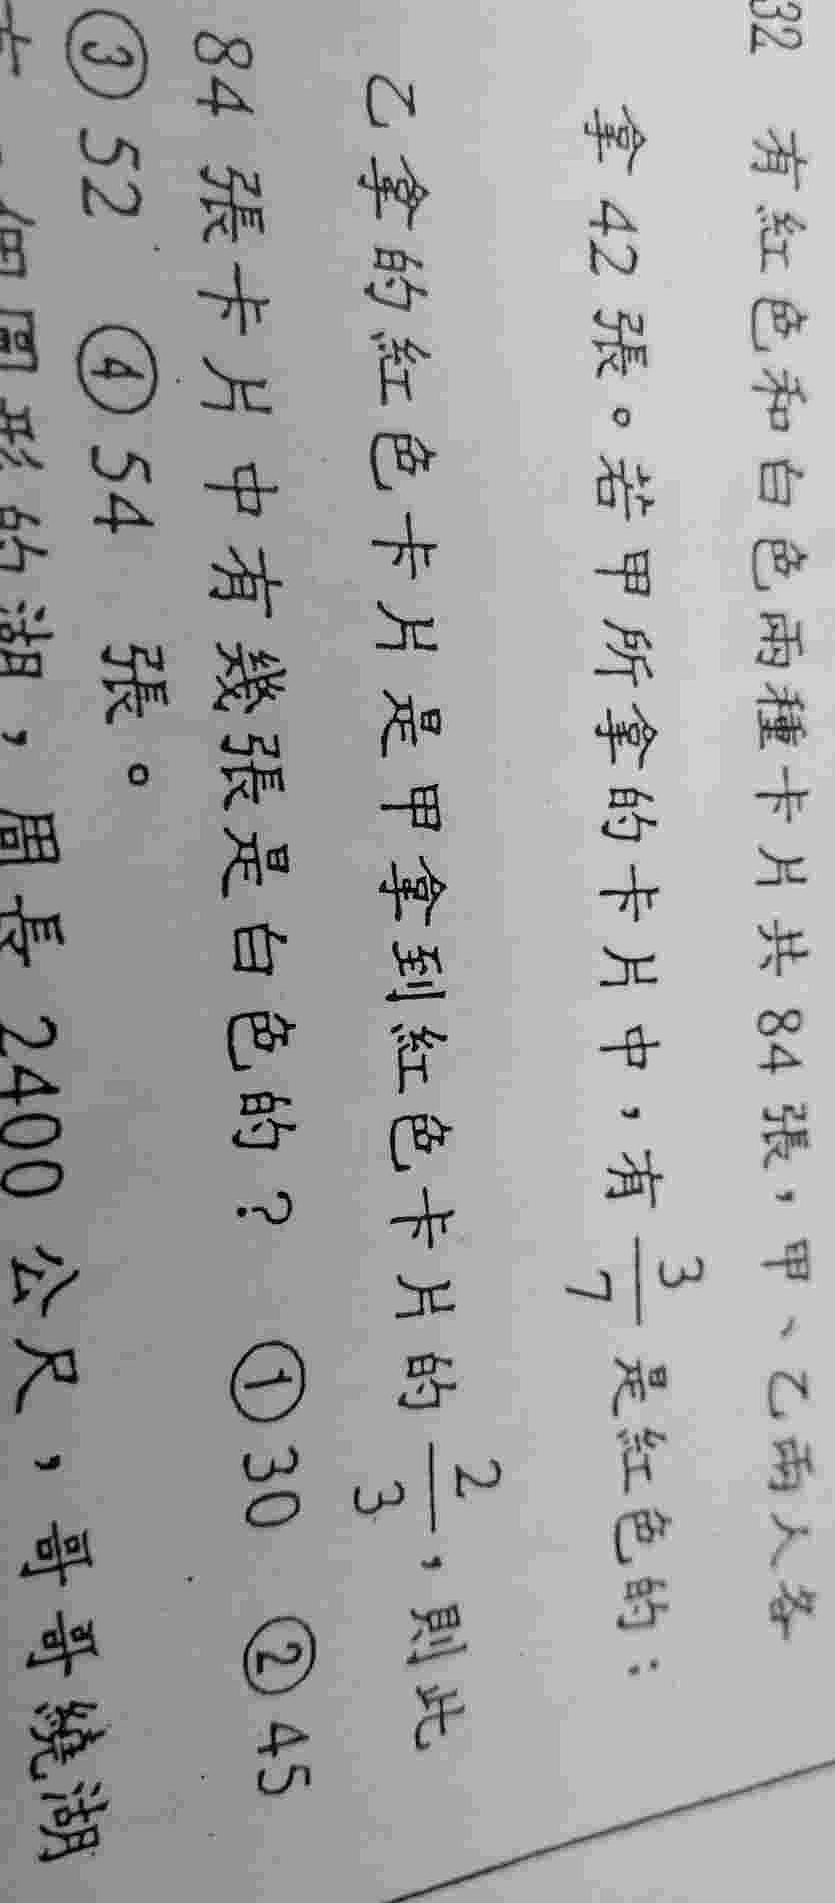 32 有紅色和白色兩種卡片共84張，甲、乙兩人各
拿42張。若甲所拿的卡片中，有3/7是紅色的；
乙拿的紅色卡片是甲拿到紅色卡片的2/3，則此
84張卡片中有幾張是白色的？ ①30 ②45
③52 ④54 張。
個圓形的湖，周長2400公尺，哥哥繞湖